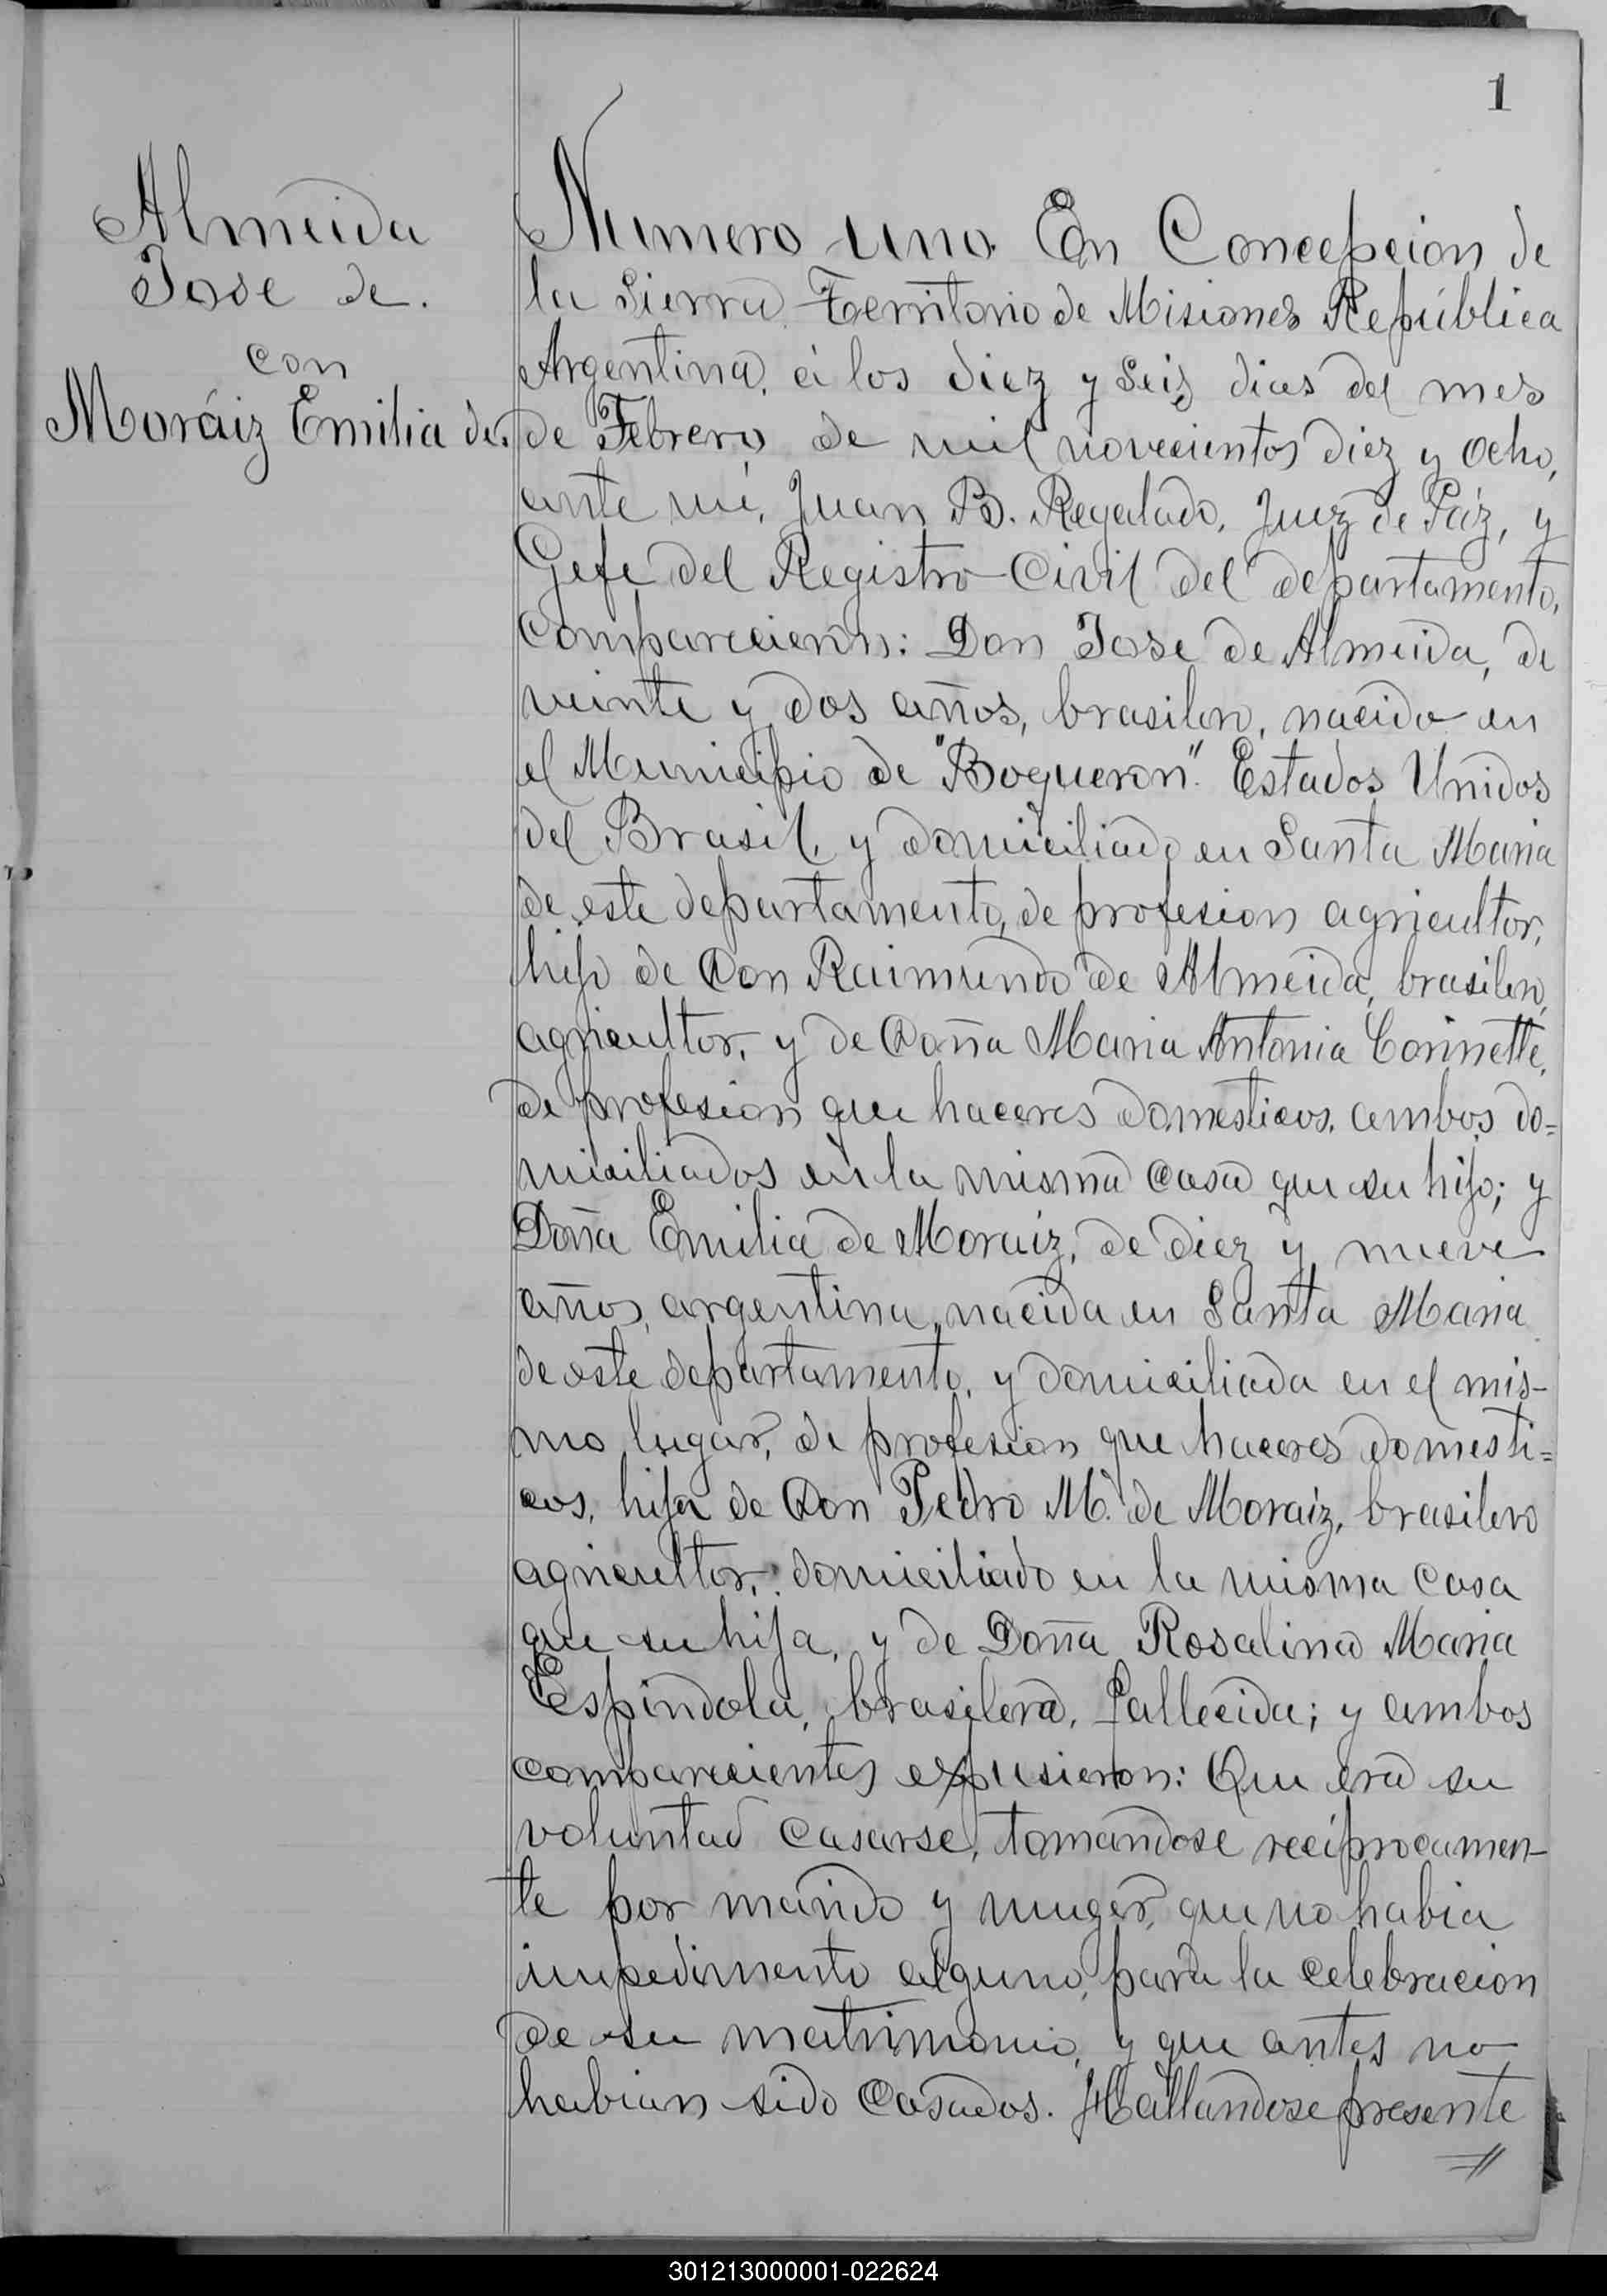 1
Almeida
Jose de.
con
Moráiz Emilia de.
Numero uno. En Concepcion de
la Sierra Territorio de Misiones República
Argentina, á los diez y seis dias del mes
de Febrero de mil novecientos diez y ocho,
ante mí, Juan B. Regalado, Juez de Páz, y
Gefe del Registro Civil del departamento,
comparecieron: Don Jose de Almeida, de
veinte y dos años, brasilero, nacido en
el Municipio de "Boqueron". Estados Unidos
del Brasil, y domiciliado en Santa Maria
de este departamento, de profesion agricultor,
hijo de Don Raimundo de Almeida, brasilero,
agricultor, y de Doña Maria Antonia Corinette,
de profesion que haceres domesticos, ambos do=
miciliados en la misma casa que su hijo; y
Doña Emilia de Moraiz, de diez y nueve
años, argentina, nacida en Santa Maria
de este departamento, y domiciliada en el mis-
mo lugar, de profesion que haceres domesti=
cos, hija de Don Pedro M. de Moraiz, brasilero
agricultor, domiciliado en la misma casa
que su hija, y de Doña Rosalina Maria
Espindola, brasilera, fallecida; y ambos
comparecientes expusieron: Que era su
voluntad casarse, tomandose reciprocamen-
te por marido y muger, que no habia
impedimento alguno, para la celebracion
de su matrimonio, y que antes no
habian sido casados. Hallandose presente
301213000001-022624